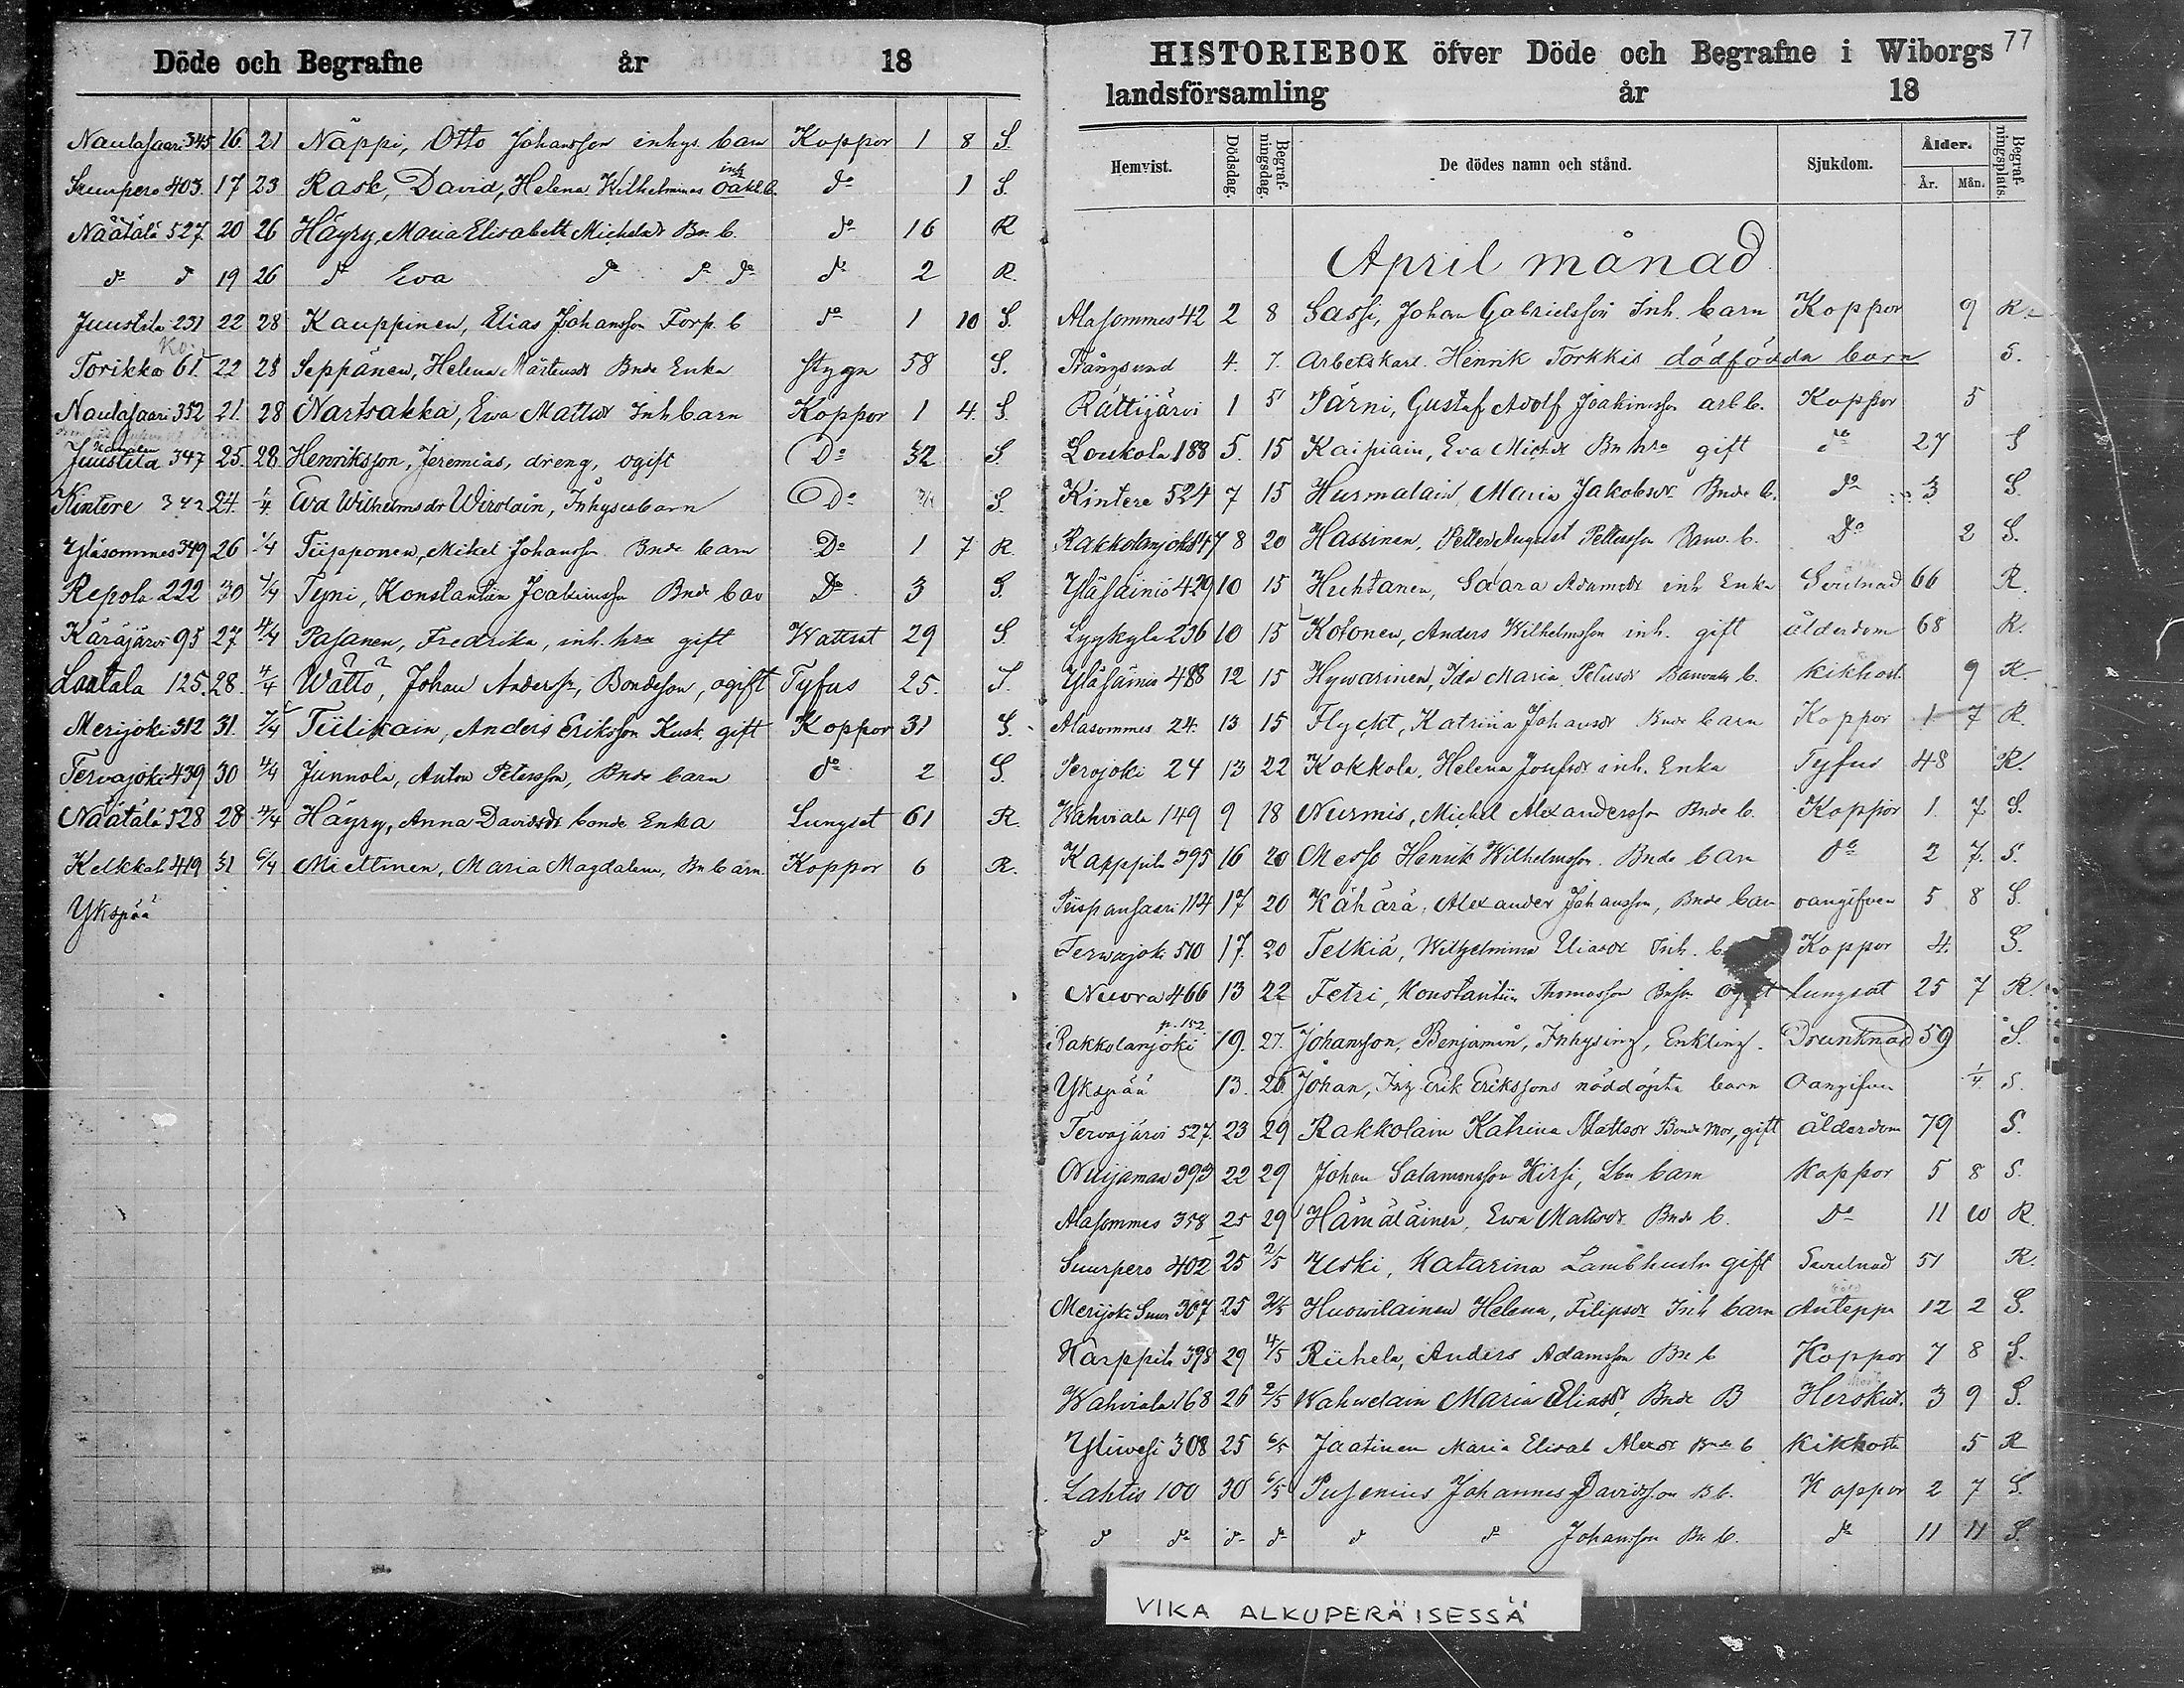 Döde och Begrafne år 18
Naulasaari 345 16 21 Näppi, Otto Johansson inhys. barn Koppor 1 8 S.
Suurpero 403. 17 23 Rask, David, Helena Wilhelminas inh oäkt. b. do 1 S.
Näätälä 527 20 26 Häyry, Maria Elisabeth Michelsdr Bn. b. do 16 R
do do 19 26 do Eva do do do do 2 R.
Juustila 231 22 28 Kauppinen, Elias Johansson Torp. b do 1 10 S.
Torikka 61. 22 28 Seppänen, Helena Mårtensdr Bnde Enka Stygn 58 S.
Naulasaari 352 21. 28 Närtsakka, Ewa Mattsdr Inh barn Koppor 1 4. S.
Juustila 347 25. 28. Henriksson, Jeremias, dreng, ogift Do 32 S.
Kintere 24. 1/4. Eva Wilhelmsdr Wirolain, Inhysesbarn Do S.
Yläsommes 349 26 1/4 Tiipponen, Mikel Johansson Bnde barn Do 1 7 R.
Repola 222 30 4/4 Teponen, Konstantin Joakimsson Bnde bar Do 3 S.
Käräjärvi 95 27 4/4 Pasanen, Fredrika, inh. hra gift Wattsot 29 S.
Lantala 125. 28. 4/4 Wättö, Johan Anderss., Bondeson, ogift Tyfus 25. S.
Merijoki 312 31. 7/4 Tiilikain, Anders Eriksson Kusk gift Koppor 31 S.
Tervajoki 439 30 4/4 Junnola, Anton Petersson, Bnde barn do 2 S.
Näätälä 528 28 4/4 Häyry, Anna Davidsdr bonde Enka Lungsot 61 R.
Kelkkala 419 31 6/4 Miettinen, Maria Magdalena, Bn barn Koppor 6 R.
Ykspää
HISTORIEBOK öfver Döde och Begrafne i Wiborgs 77
landsförsamling år 18
Hemvist. Dödsdag. Begrafningsdag. De dödes namn och stånd. Sjukdom. Ålder. År. Mån. Begrafningsplats.
April månad
Alasommes 42 2 8 Sassi, Johan Gabrielsson Inh. barn Koppor 9 R.
Trångsund 4. 7. Arbetskarl. Henrik Torkkis dödfödda barn S.
Rättijärvi 1 5 Pärni, Gustaf Adolf Joakimsson arb b. Koppor 5
Loukola 188 5. 15 Kaipiain, Eva Michdr Bn hra gift do 27 S
Kintere 524 7 15 Hurmalain, Maria Jakobsdr Bnde b. do 3 S.
Rakkolanjoki 147 8 20 Hassinen, Petter August Pettersson Banv. b. Do 2 S.
Yläsäiniö 429 10 15 Huhtanen, Saara Adamsdr inh Enka Svulnad 66 R.
Lyykylä 236 10 15 Kotonen, Anders Wilhelmsson inh. gift ålderdom 68 R.
Yläsäiniö 488 12 15 Hywärinen, Ida Maria Petersdr Banvakt b. kikhost 9 R.
Alasommes 24. 13 15 Flyckt, Katrina Johansdr Bnde barn Koppor 1 7 R.
Perojoki 24 13 22 Kokkola, Helena Josefsdr inh. Enka Tyfus 48 R.
Wahviala 149 9 18 Nurmis, Michel Alexandersson Bnde b. Koppor 1. 7. S.
Karppila 395 16 20 Messo Henrik Wilhelmsson. Bnde barn do 2 7. S.
Piispansaari 114 17 20 Kähärä, Alexander Johansson, Bnde barn oangifven 5 8 S.
Terwajoki 510 17. 20 Telkiä, Wilhelmina Eliasdr Inh. b. Koppor 4. S.
Nuora 466 13 22 Tetri, Konstantin Thomasson Bnson ogift Lungsot 25 7 R.
Rakkolanjoki p. 152. 19. 27. Johansson, Benjamin, Inhysing, Enkling. Drunknad 59 S.
Ykspää 13. 26 Johan, Inh Erik Erikssons nöddöpta barn Oangifven 1/4 S.
Tervajärvi 527. 23 29 Rakkolain Katrina Mattsdr Bonde Mor, gift ålderdom 79 S.
Nuijamaa 393 22 29 Johan Salomonsson Hirsi, Lbn barn Koppor 5 8 S.
Alasommes 358 25 29 Hämäläinen, Ewa Mattsdr Bnde b. Do 11 10 R
Suurpero 402 25 2/5 Uski, Katarina Lambhustr gift Svulnad 51 R.
Merijoki Suur 307 25 2/5 Huowilainen Helena, Filipsdr Inh barn 12 2 S.
Karppila 398 29 4/5 Riihela, Anders Adamsson Bn b Koppor 7 8 S.
Wahviala 168 26 2/5 Wahwelain Maria Eliasdr, Bnde B 3 9 S.
Yliwesi 308 25 6/5 Jaatinen Maria Elisab Alexdr Bnde b kikhosta 5 R
Lahtis 100 30 6/5 Pusenius Johannes Davidsson B b. Koppor 2 7 S.
do do do do do do Johansson Bn b. do 11 11 S.
VIKA ALKUPERÄISESSÄ